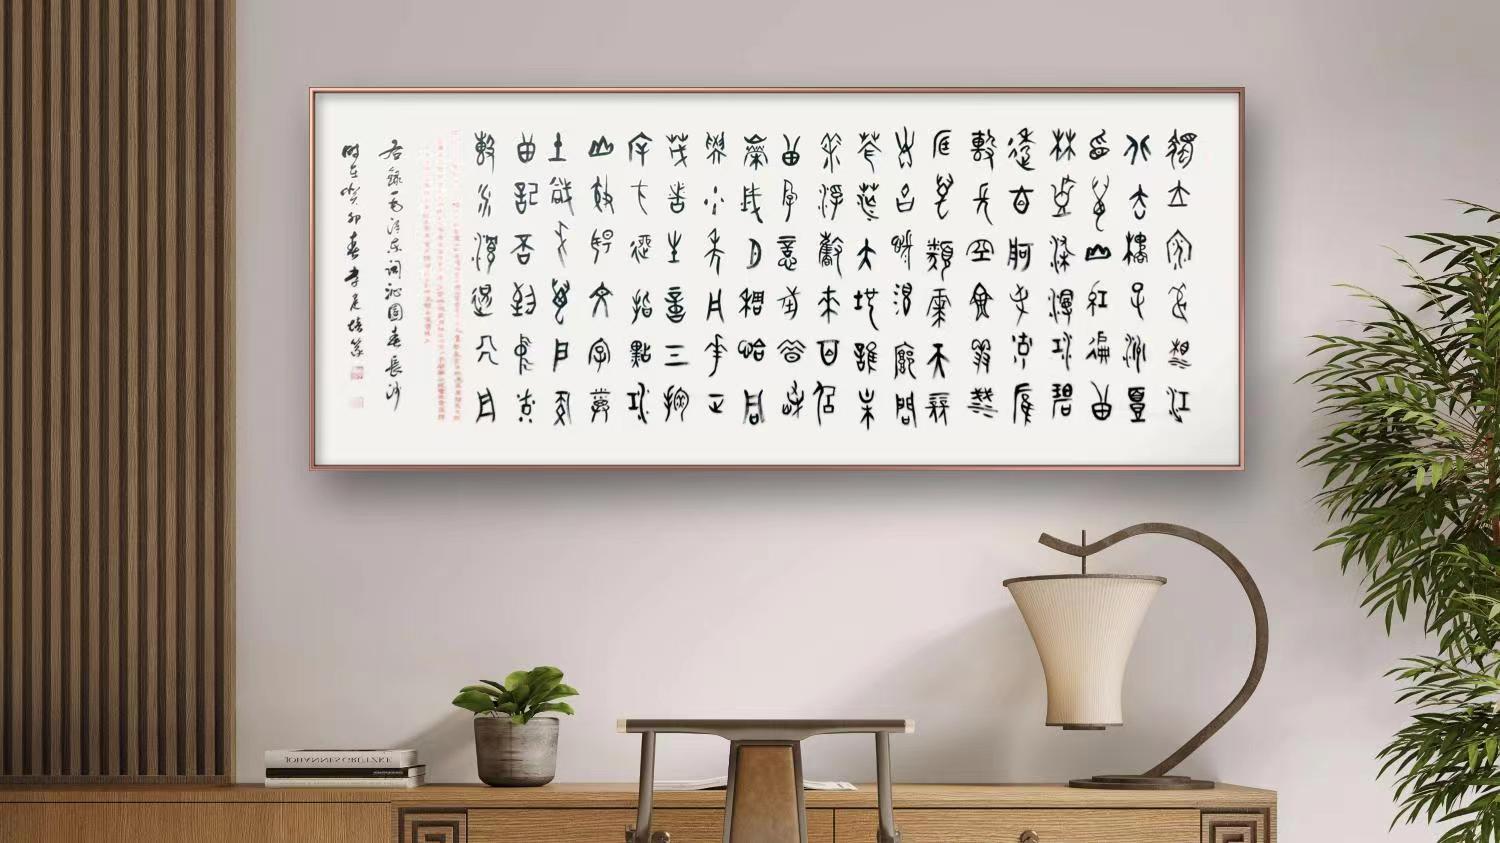 獨立寒秋湘江
北去橘子洲頭
看萬山紅遍層
林盡染漫江碧
透百舸爭流鷹
擊長空魚翔淺
底萬類霜天競
自由悵寥廓問
蒼茫大地誰主
沉浮攜來百侶
曾游憶往昔崢
嶸歲月稠恰同
學少年風華正
茂書生意氣揮
斥方遒指點江
山激揚文字糞
土當年萬戶侯
曾記否到中流
擊水浪遏飛舟
右錄毛澤東詞沁園春長沙
時在癸卯春李
JOHANNES GRÜTZKE